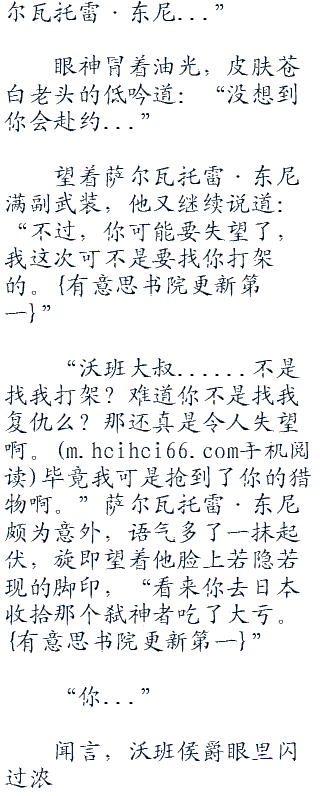 尔瓦托雷·东尼...”
眼神冒着油光，皮肤苍
白老头的低吟道：“没想到
你会赴约...”
望着萨尔瓦托雷·东尼
满副武装，他又继续说道：
“不过，你可能要失望了，
我这次可不是要找你打架
的。{有意思书院更新第
一}”
“沃班大叔......不是
找我打架？难道你不是找我
复仇么？那还真是令人失望
啊。(m.hcihci66.com手机阅
读)毕竟我可是抢到了你的猎
物啊。”萨尔瓦托雷·东尼
颇为意外，语气多了一抹起
伏，旋即望着他脸上若隐若
现的脚印，“看来你去日本
收拾那个弑神者吃了大亏。
{有意思书院更新第一}”
“你...”
闻言，沃班侯爵眼里闪
过浓